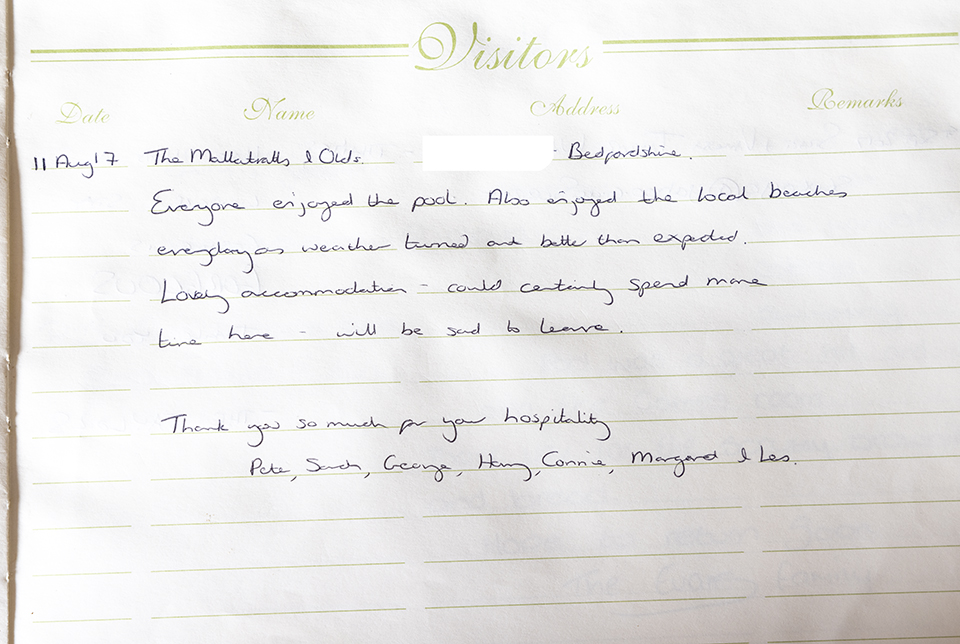 Visitors
Date Name Address Remarks
11 Aug 17 The & Olds. Bedfordshire.
Everyone enjoyed the pool. Also enjoyed the local beaches
everyday as weather turned out better than expected.
Lovely accommodation - could certainly spend more
time here - will be sad to leave.
Thank you so much for your hospitality
Pete, Sarah, George, Harry, Connie, Margaret & Les.